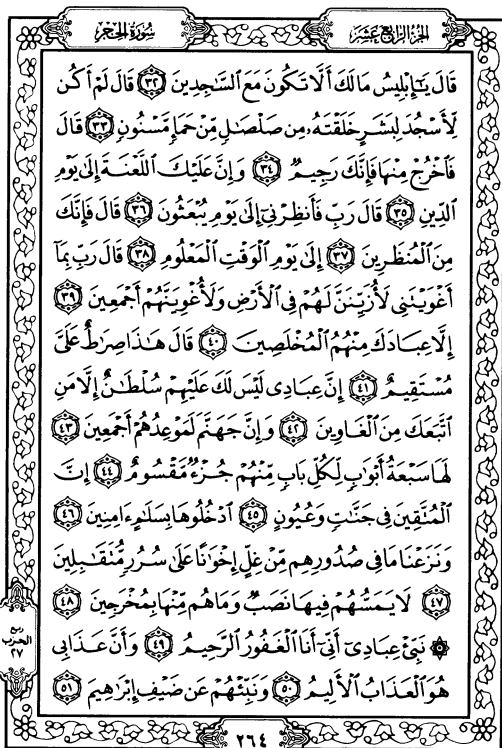 سُورَةُ الحِجْر
الجزء الرابع عشر
قَالَ يَٰٓإِبۡلِيسُ مَالَكَ أَلَّا تَكُونَ مَعَ ٱلسَّٰجِدِينَ ٣٢ قَالَ لَمۡ أَكُن
لِّأَسۡجُدَ لِبَشَرٍ خَلَقۡتَهُۥ مِن صَلۡصَٰلٖ مِّنۡ حَمَإٖ مَّسۡنُونٖ ٣٣ قَالَ
فَٱخۡرُجۡ مِنۡهَا فَإِنَّكَ رَجِيمٞ ٣٤ وَإِنَّ عَلَيۡكَ ٱللَّعۡنَةَ إِلَىٰ يَوۡمِ
ٱلدِّينِ ٣٥ قَالَ رَبِّ فَأَنظِرۡنِيٓ إِلَىٰ يَوۡمِ يُبۡعَثُونَ ٣٦ قَالَ فَإِنَّكَ
مِنَ ٱلۡمُنظَرِينَ ٣٧ إِلَىٰ يَوۡمِ ٱلۡوَقۡتِ ٱلۡمَعۡلُومِ ٣٨ قَالَ رَبِّ بِمَآ
أَغۡوَيۡتَنِي لَأُزَيِّنَنَّ لَهُمۡ فِي ٱلۡأَرۡضِ وَلَأُغۡوِيَنَّهُمۡ أَجۡمَعِينَ ٣٩
إِلَّا عِبَادَكَ مِنۡهُمُ ٱلۡمُخۡلَصِينَ ٤٠ قَالَ هَٰذَا صِرَٰطٌ عَلَيَّ
مُسۡتَقِيمٌ ٤١ إِنَّ عِبَادِي لَيۡسَ لَكَ عَلَيۡهِمۡ سُلۡطَٰنٌ إِلَّا مَنِ
ٱتَّبَعَكَ مِنَ ٱلۡغَاوِينَ ٤٢ وَإِنَّ جَهَنَّمَ لَمَوۡعِدُهُمۡ أَجۡمَعِينَ ٤٣
لَهَا سَبۡعَةُ أَبۡوَٰبٖ لِّكُلِّ بَابٖ مِّنۡهُمۡ جُزۡءٞ مَّقۡسُومٌ ٤٤ إِنَّ
ٱلۡمُتَّقِينَ فِي جَنَّٰتٖ وَعُيُونٍ ٤٥ ٱدۡخُلُوهَا بِسَلَٰمٍ ءَامِنِينَ ٤٦
وَنَزَعۡنَا مَا فِي صُدُورِهِم مِّنۡ غِلٍّ إِخۡوَٰنًا عَلَىٰ سُرُرٖ مُّتَقَٰبِلِينَ
٤٧ لَا يَمَسُّهُمۡ فِيهَا نَصَبٞ وَمَا هُم مِّنۡهَا بِمُخۡرَجِينَ ٤٨
۞ نَبِّئۡ عِبَادِيٓ أَنِّيٓ أَنَا ٱلۡغَفُورُ ٱلرَّحِيمُ ٤٩ وَأَنَّ عَذَابِي
هُوَ ٱلۡعَذَابُ ٱلۡأَلِيمُ ٥٠ وَنَبِّئۡهُمۡ عَن ضَيۡفِ إِبۡرَٰهِيمَ ٥١
ربع
الحزب
٢٧
٢٦٤